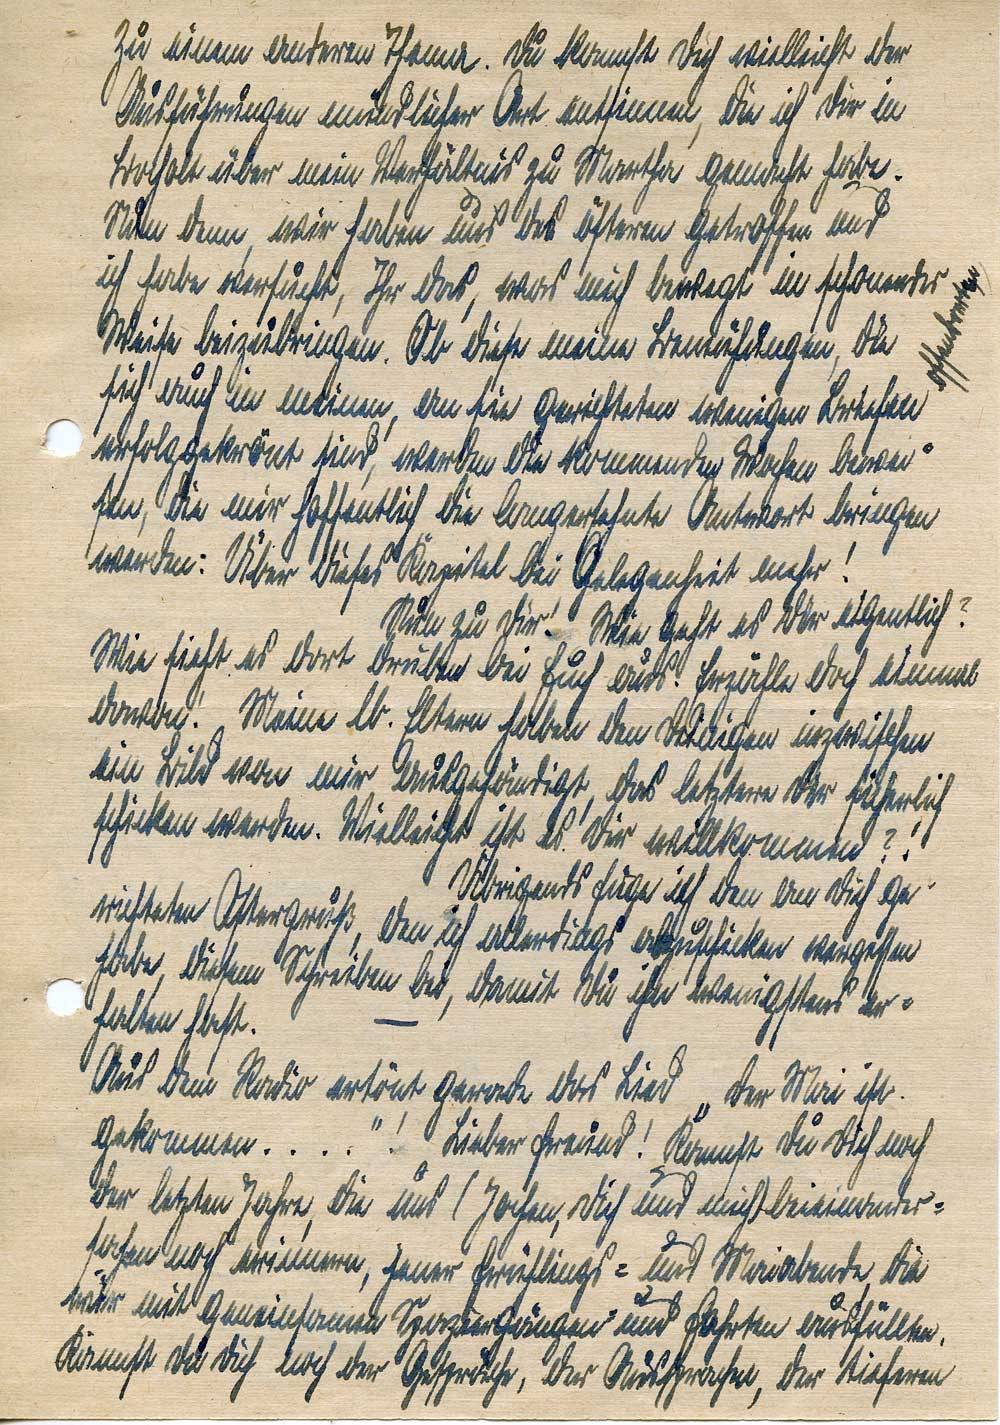 Zu einem anderen Thema. Du kannst Dich vielleicht der
Ausführungen mündlicher Art entsinnen, die ich Dir in
Bocholt über mein Verhältnis zu Martha gemacht habe.
Nun denn, wir haben uns des öfteren getroffen und
ich habe versucht, Ihr das, was mich bewegt in schonender
Weise beizubringen. Ob diese meine Bemühungen, die
sich auch in meinen, an sie gerichteten wenigen Briefen
offenbarten
erfolggekrönt sind, werden die kommenden Wochen bewei-
sen, die mir hoffentlich die langersehnte Antwort bringen
werden: Über dieses Kapitel bei Gelegenheit mehr!
Nun zu Dir! Wie geht es Dir eigentlich?
Wie sieht es dort drüben bei Euch aus? Erzähle doch einmal
davon! Meine lb. Eltern haben den Deinigen inzwischen
ein Bild von mir ausgehändigt, das letztere Dir sicherlich
schicken werden. Vielleicht ist es Dir willkommen?!
Übrigends füge ich den an Dich ge-
richteten Ostergruß, den ich allerdings abzuschicken vergessen
habe, diesem Schreiben bei, damit Du ihn wenigstens er-
halten hast.
Aus dem Radio ertönt gerade das Lied „Der Mai ist
gekommen....."! Lieber Freund! Kannst Du Dich noch
der letzten Jahre, die uns (Jochen, Dich und mich) beieinander-
sahen noch erinnern, jener Frühlings- und Maiabende, die
wir mit gemeinsamen Spaziergängen und Fahrten ausfüllten.
Kannst Du Dich noch der Gespräche, der Aussprachen, der tieferen